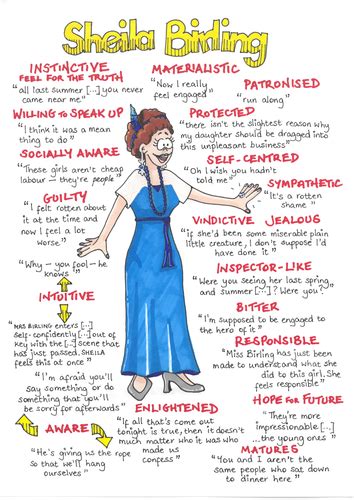 Sheila Birling
INSTINCTIVE
FEEL FOR THE TRUTH
"all last summer [...] you never
came near me"
WILLING TO SPEAK UP
"I think it was a mean
thing to do"
SOCIALLY AWARE
"These girls aren't cheap
labour – they're people"
GUILTY
"I felt rotten about
it at the time and
now I feel a lot
worse"
"Why – you fool – he
knows"
INTUITIVE
"MRS BIRLING enters [...]
self-confidently [...] out of
key with the [...] scene that
has just passed. SHEILA
feels this at once"
"I'm afraid you'll
say something or do
something that you'll
be sorry for afterwards"
AWARE
"He's giving us the rope
so that we'll hang
ourselves"
MATERIALISTIC
"Now I really
feel engaged"
PATRONISED
"run along"
PROTECTED
"there isn't the slightest reason why
my daughter should be dragged into
this unpleasant business"
SELF-CENTRED
"Oh I wish you hadn't
told me"
SYMPATHETIC
"It's a rotten
shame"
VINDICTIVE JEALOUS
"if she'd been some miserable plain
little creature, I don't suppose I'd
have done it"
INSPECTOR-LIKE
"Were you seeing her last spring
and summer [...]? Were you?"
BITTER
"I'm supposed to be engaged to
the hero of it"
RESPONSIBLE
"Miss Birling has just been
made to understand what she
did to this girl. She
feels responsible"
HOPE FOR FUTURE
"They're more
impressionable [...]
...the young ones"
ENLIGHTENED
"If all that's come out
tonight is true, then it doesn't
much matter who it was who
made us
confess"
MATURES
"You and I aren't the
same people who sat down
to dinner here"